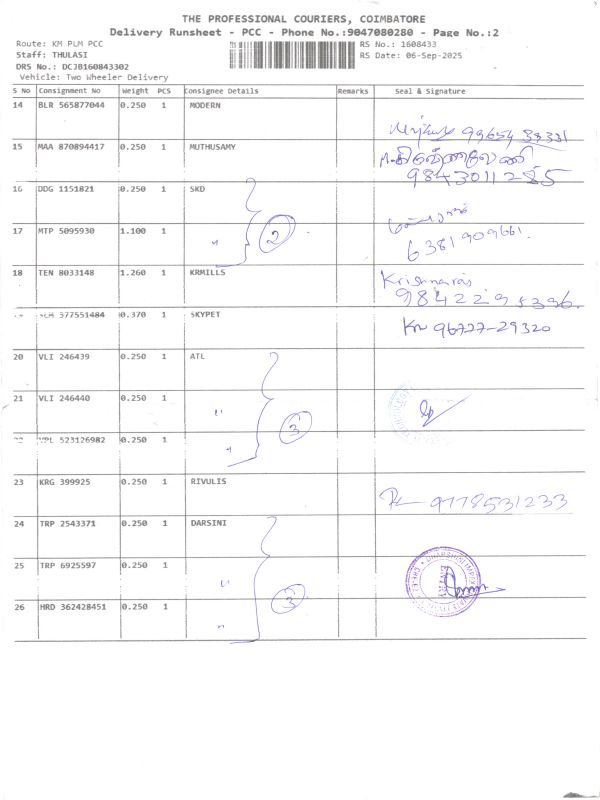 THE PROFESSIONAL COURIERS, COIMBATORE
Delivery Runsheet - PCC - Phone No.:9047080280 - Page No.:2
Route: KM PLM PCC RS No.: 1608433
Staff: THULASI RS Date: 06-Sep-2025
DRS No.: DCJB160843302
Vehicle: Two Wheeler Delivery
S No Consignment No Weight PCS Consignee Details Remarks Seal & Signature
14 BLR 565877044 0.250 1 MODERN
15 MAA 870894417 0.250 1 MUTHUSAMY
9843011285
16 DDG 1151821 0.250 1 SKD
17 MTP 5095930 1.100 1 " 2
6381909661
18 TEN 8033148 1.260 1 KRMILLS Krishnaraj
577551484 0.370 1 SKYPET 96727-29320
20 VLI 246439 0.250 1 ATL
21 VLI 246440 0.250 1 " 3
523126982 0.250 1 "
23 KRG 399925 0.250 1 RIVULIS 9778531233
24 TRP 2543371 0.250 1 DARSINI
25 TRP 6925597 0.250 1 " 3
26 HRD 362428451 0.250 1 "
ENTRY